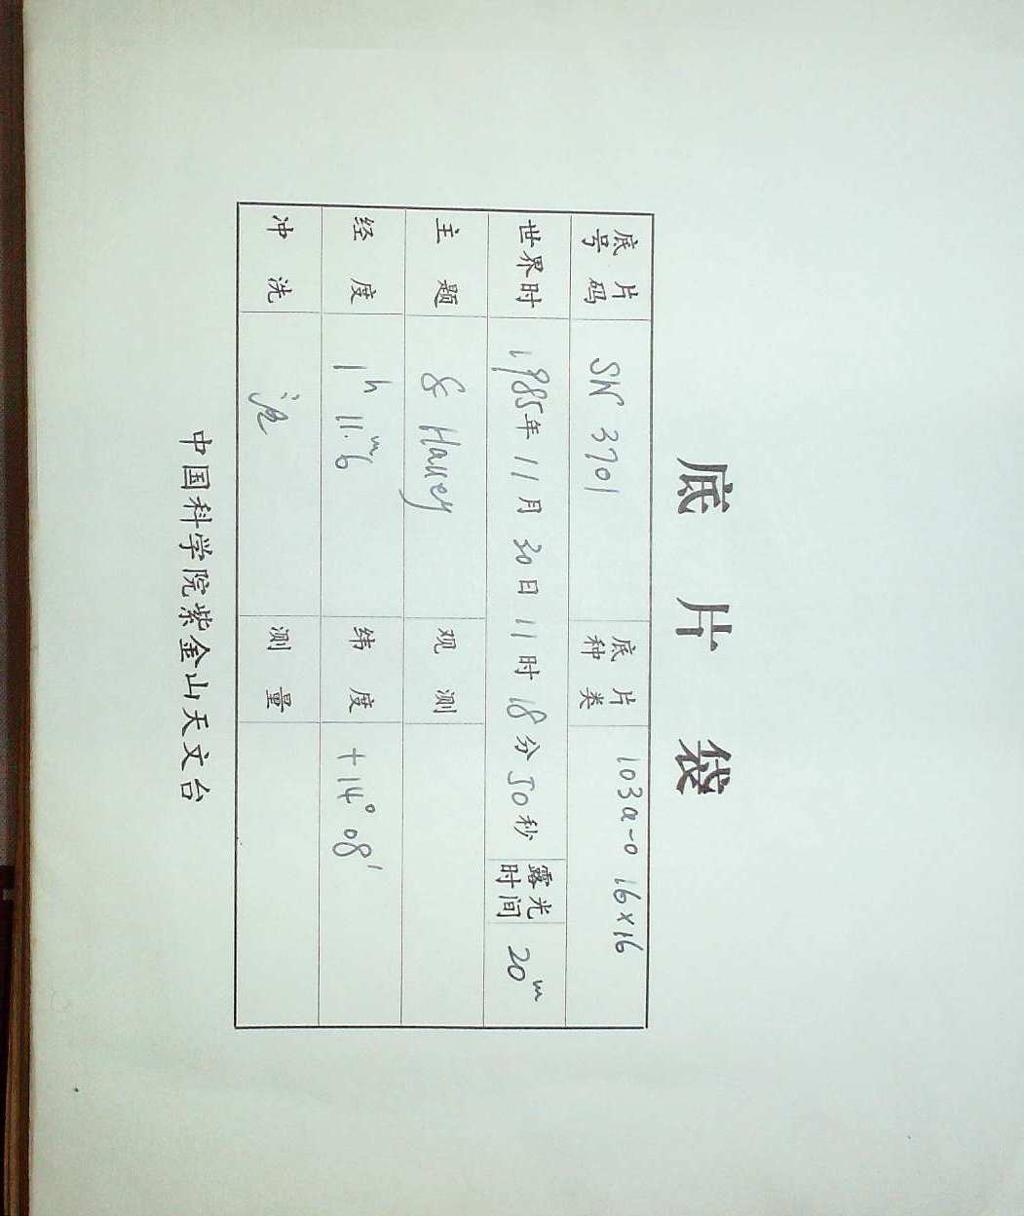 底片袋
底片号码 SN 3701 底片种类 103a-O 16×16
世界时 1985年11月30日11时18分50秒 露光时间 20m
主题 Halley 观测
经度 1h 11.m6 纬度 +14°08′
冲洗 测量
中国科学院紫金山天文台